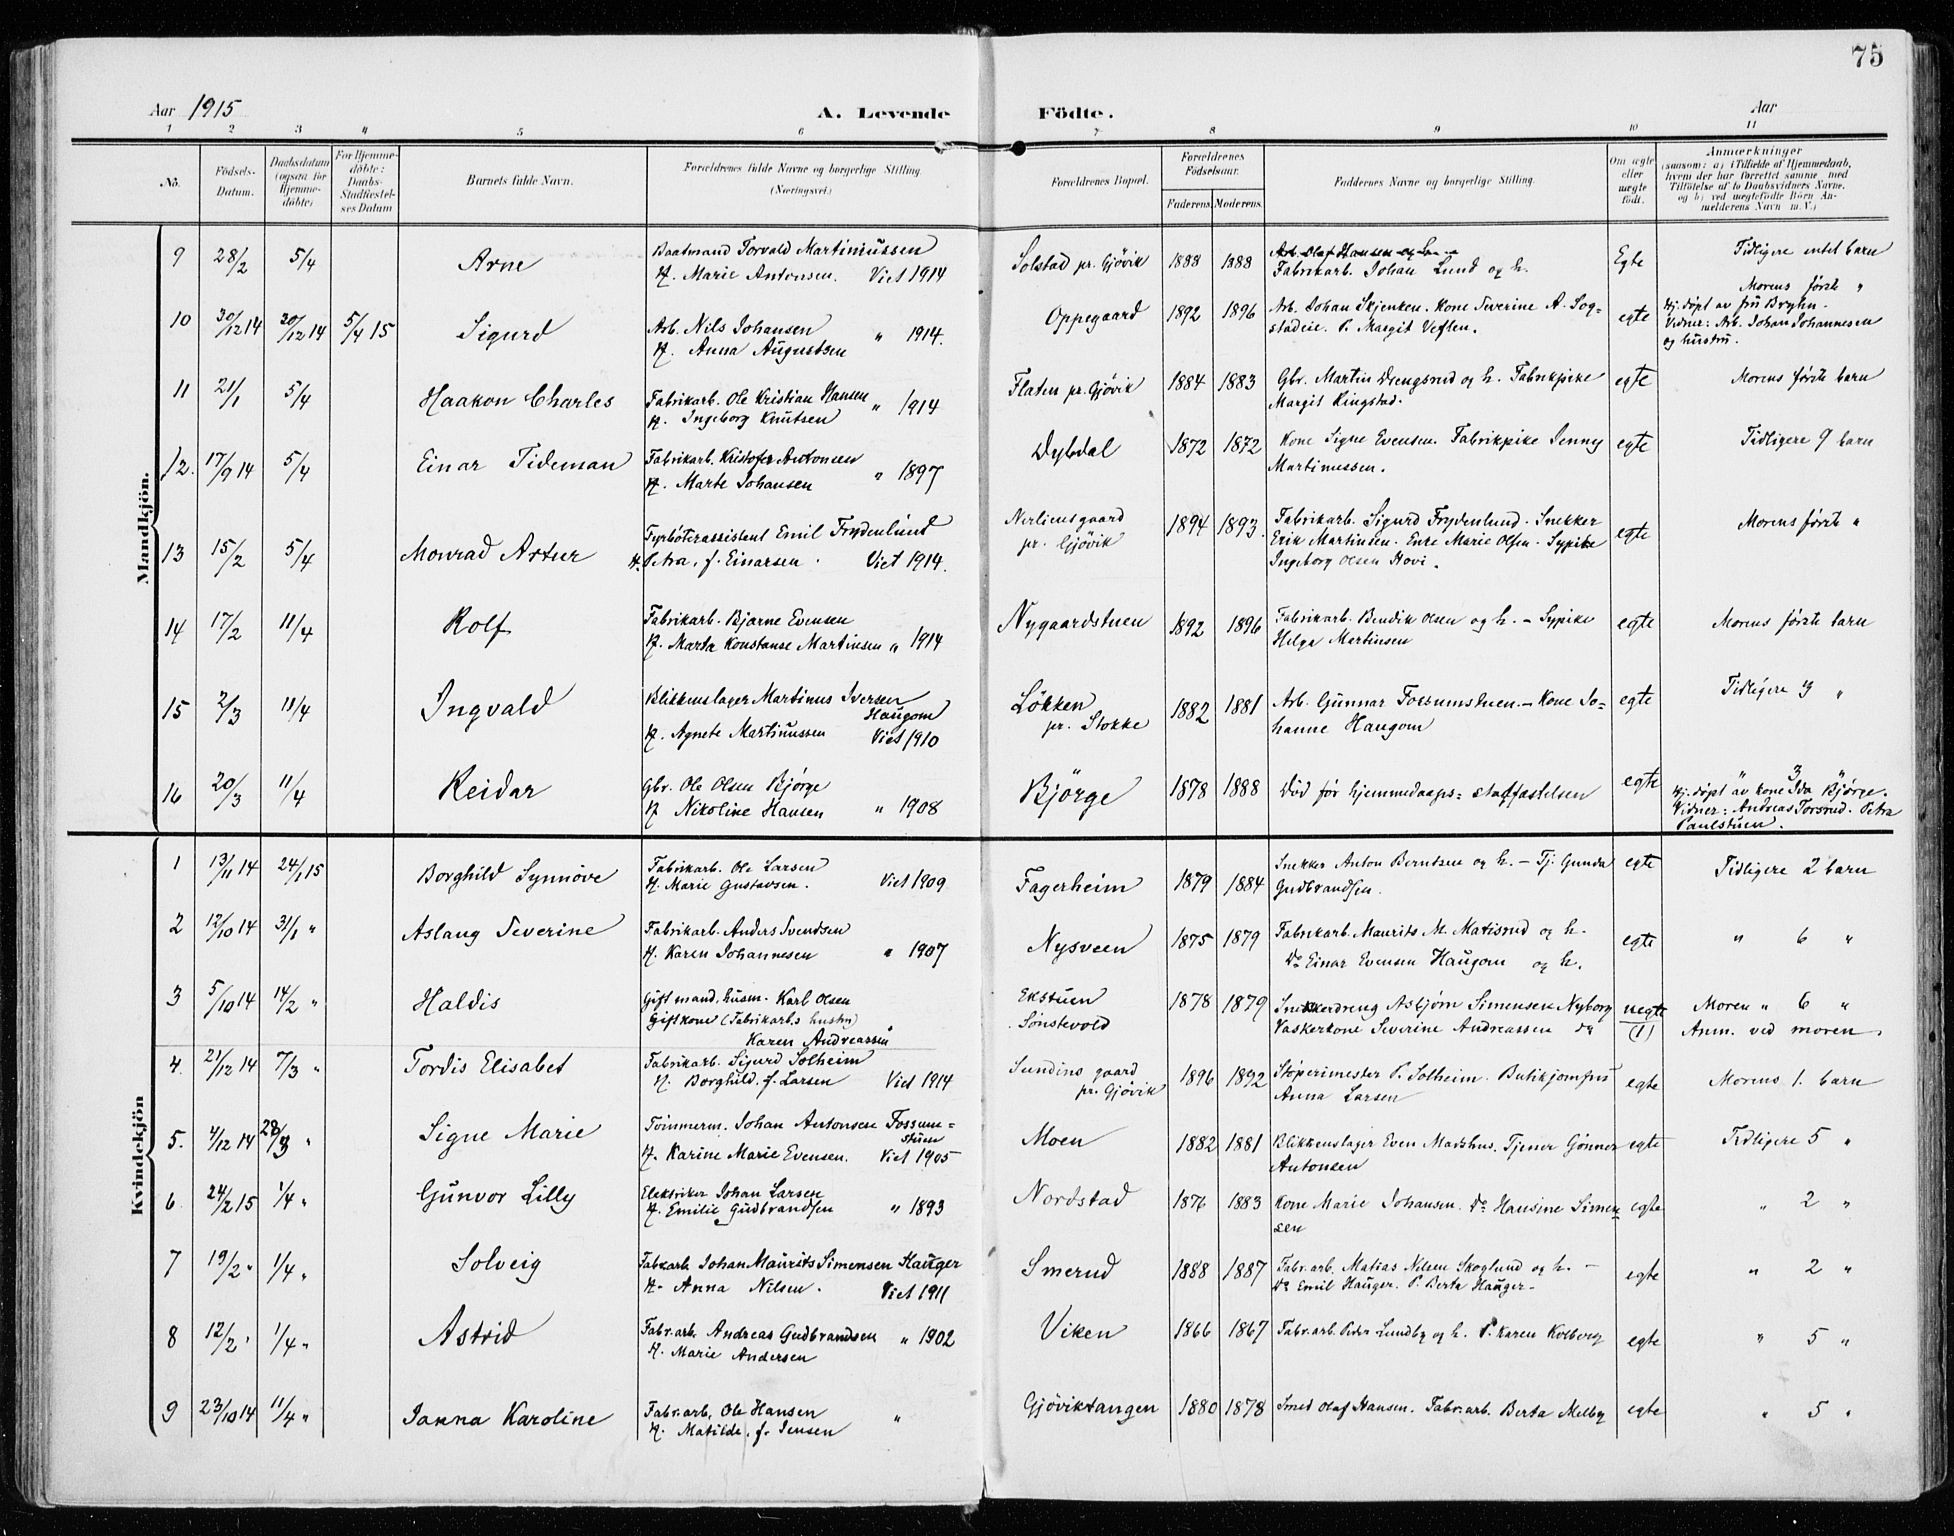 75
Aar 1915 A. Levende Födte. Aar
1 2 3 4 5 6 7 8 9 10 11
No. Födsels-Datum. Daabsdatum (ogsaa for Hjemme-döbte) For Hjemme-döbte: Daabs-Stadfæstel-ses Datum Barnets fulde Navn. Forældrenes fulde Navne og borgerlige Stilling. (Næringsvei.) Forældrenes Bopæl. Forældrenes Födselsaar. Faderens. Moderens. Faddernes Navne og borgerlige Stilling. Om ægte eller uægte födt. Anmærkninger (saasom: a) i Tilfælde af Hjemmedaab, hvem der har forrettet samme, med Tilföielse af to Daabsvidners Navne, og b) ved uægtefödte Börn Anmelderens Navn m.V.)
Mandkjön.
9 28/2 5/4 Arne Baatmand Torvald Martiniussen Solstad pr. Gjövik 1888 1888 Arb. Olaf Hansen og Egte Tidligere intet barn
H. Marie Antonsen. Viet 1914 Fabrikarb. Johan Lund og h.
Morens første "
10 30/12 14 30/12 14 5/4 15 Sigurd Arb. Nils Johansen Oppegaard 1892 1896 Arb. Johan Skjenken. Kone Severine A. Sog- egte Hj. døpt av fru Bryhn.
H. Anna Augustsen " 1914. stadeie. P. Margit Veflen. Vidner: Arb. Johan Johannesen
og hustru.
11 21/1 5/4 Haakon Charles Fabrikarb. Ole Kristian Hansen Flaten pr. Gjövik 1884 1883 Gbr. Martin Drengsrud og h. Fabrikpike egte Morens første barn
H. Ingeborg Knutsen " 1914 Margit Ringstad.
12. 17/9 14 5/4 Einar Tideman Fabrikarb. Kristofer Antonsen Dybdal 1872 1872 Kone Signe Evensen. Fabrikpike Jenny egte Tidligere 9 barn
H. Marte Johansen " 1897 Martinussen.
13 15/2 5/4 Monrad Artur Fyrböterassistent Emil Frydenlund Nerliensgaard 1894 1893. Fabrikarb. Sigurd Frydenlund. Snekker egte Morens første "
H. Petra, f. Einarsen. Viet 1914. pr. Gjövik Erik Martinsen. Enke Marie Olsen. Sypike
Ingeborg Olsen Hovi.
14 17/2 11/4 Rolf Fabrikarb. Bjarne Evensen Nygaardstuen 1892 1896 Fabrikarb. Bendik Olsen og h. – Sypike egte Morens første barn
H. Marta Konstanse Martinsen " 1914 Helga Martinsen
15 2/3 11/4 Ingvald Blikkenslager Martinus Iversen Løkken 1882 1881 Arb. Gunnar Fossumstuen. – Kone Jo- egte Tidligere 3 "
Haugom
H. Agnete Martinussen Viet 1910 pr. Stokke hanne Haugom
16 20/3 11/4 Reidar Gbr. Ole Olsen Bjørge Bjørge 1878 1888 Död før hjemmedaaps= stadfæstelsen egte " 3 "
H. Nikoline Hansen " 1908 Hj. døpt av kone Ida Bjørge.
Vidner: Andreas Torsrud. Petra
Paulstuen.
Kvindekjön
1 13/11 14 24/1 15 Borghild Synnöve Fabrikarb. Ole Larsen Fagerheim 1879 1884 Snekker Anton Berntsen og h. – Tj. Gunda egte Tidligere 2 barn
H. Marie Gustavsen. Viet 1909 Gudbrandsen.
2 12/10 14 31/1 " Aslaug Severine Fabrikarb. Anders Svendsen Nysveen 1875 1879 Fabrikarb. Maurits M. Matisrud og h. egte " 6 "
H. Karen Johannesen " 1907 Do Einar Evensen Haugom og h.
3 5/10 14 14/2 " Haldis Gift mand, husm. Karl Olsen Ekstuen 1878 1879 Snekkerdreng Asbjørn Simensen Nyborg uegte Moren " 6 "
Gift kone (Fabrikarb.s hustru) Sønstevold Vaskerkone Severine Andreassen da (1) Anm. ved moren.
Karen Andreassen
4. 21/12 14 7/3 " Tordis Elisabet Fabrikarb. Sigurd Solheim Sundins gaard 1896 1892 Støperimester P. Solheim. Butikjomfru egte Morens 1. barn
H. Borghild, f. Larsen Viet 1914 pr. Gjövik Anna Larsen
5. 4/12 14 28/3 " Signe Marie Tømmerm. Johan Antonsen Fossum= Moen 1882 1881 Blikkenslager Even Madshus. Tjener Gønner egte Tidligere 5 "
stuen
H. Karine Marie Evensen. Viet 1905 Antonsen
6 24/2 15 1/4 " Gunvor Lilly Elektriker Johan Larsen Nordstad 1876 1883 Kone Marie Johansen. Do Hansine Simen= egte " 2 "
H. Emilie Gudbrandsen " 1893 sen
7 19/2 " 1/4 " Solveig Fabrarb. Johan Maurits Simensen Hauger Smerud 1888 1887 Fabr.arb. Matias Nilsen Skoglund og h. – egte " 2 "
H. Anna Nilsen. Viet 1911 Do Emil Hauger. P. Berta Hauger.
8 12/2 " 1/4 " Astrid Fabr.arb. Andreas Gudbrandsen " 1902 Viken 1866 1867 Fabr.arb. Peder Lundby og h. P. Karen Kolberg egte " 5 "
H. Marie Andersen
9 23/10 14 11/4 " Janna Karoline Fabr.arb. Ole Hansen " Gjöviktangen 1880 1878 Smed Olaf Hansen. Fabr.arb. Berta Melby egte " 5 "
H. Matilde, f. Jensen